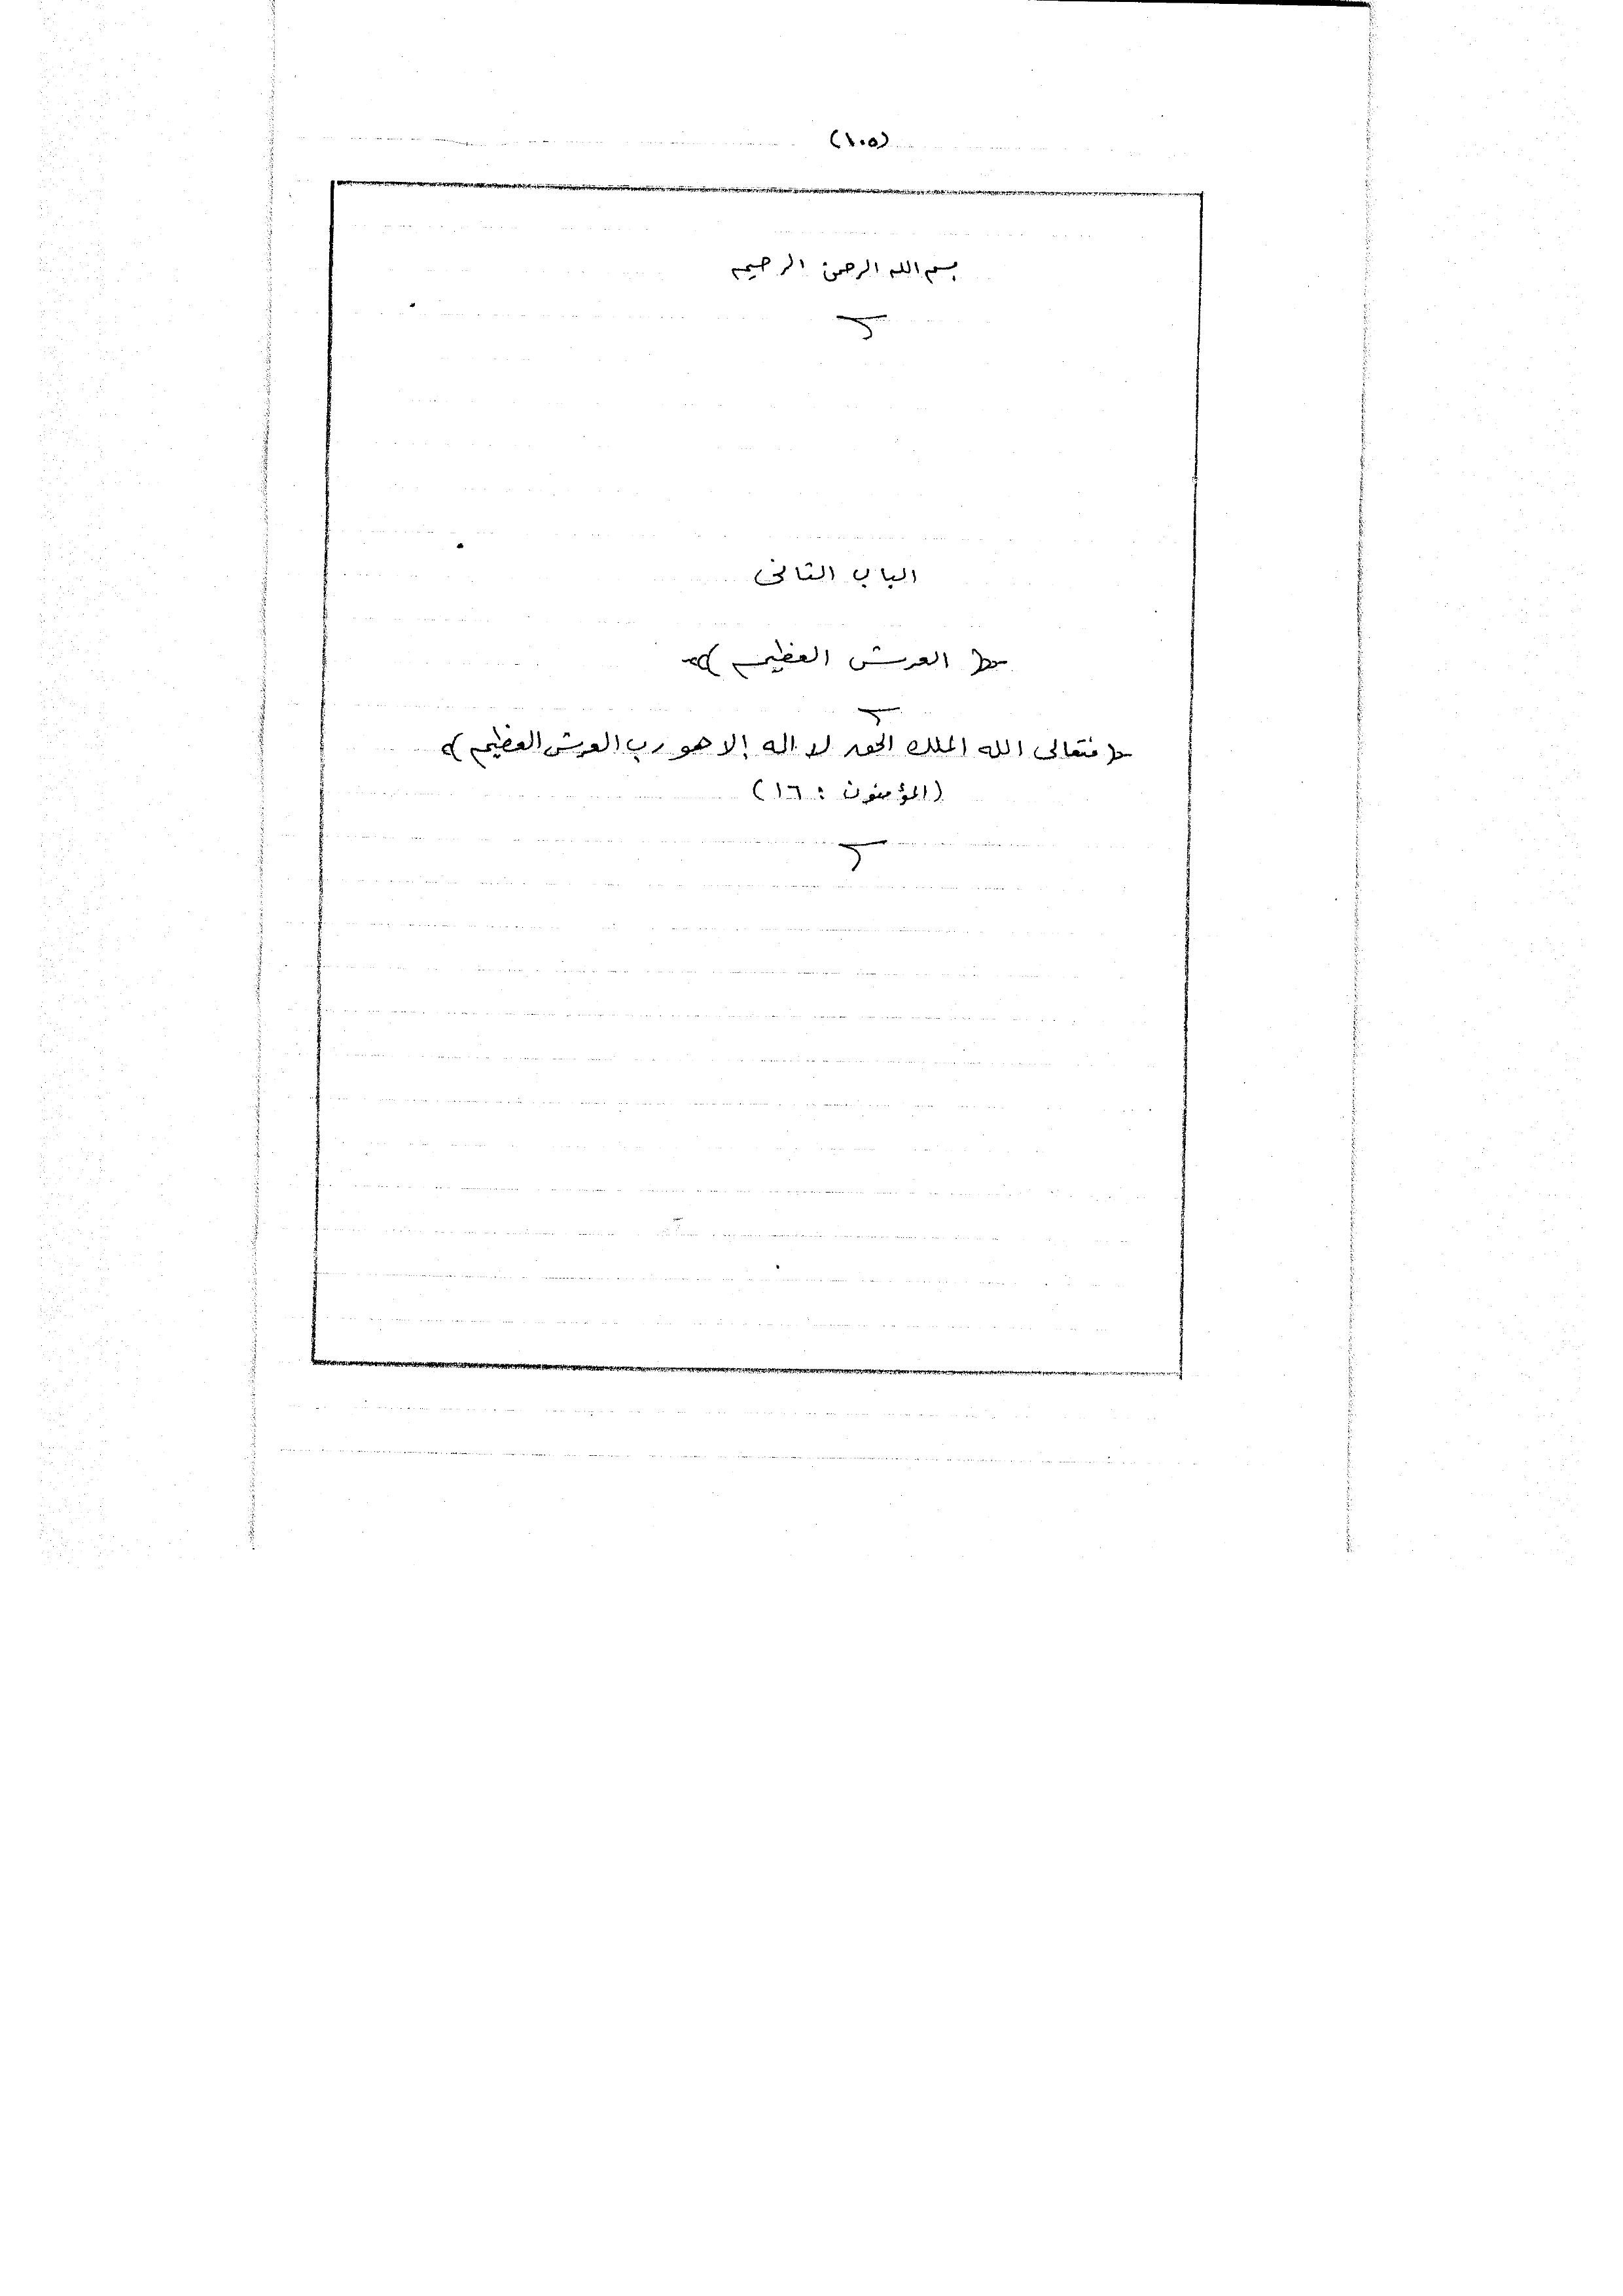 (١٠٥)
بسم الله الرحمن الرحيم
الباب الثانى
﴿ العرش العظيم ﴾
﴿ فتعالى الله الملك الحق لا اله إلا هو رب العرش العظيم ﴾
(المؤمنون : ١٦)